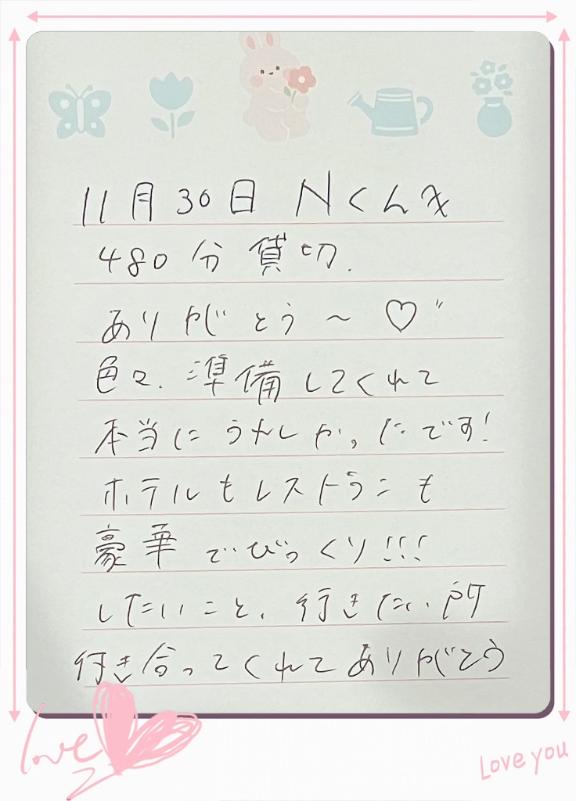 11月30日 Nくん
480分 貸切.
ありがとう〜♡"
色々.準備してくれて
本当にうれしかったです!
ホテルもレストランも
豪華でびっくり!!!
したいこと、行きたい所
付き合ってくれてありがとう
love
Love you